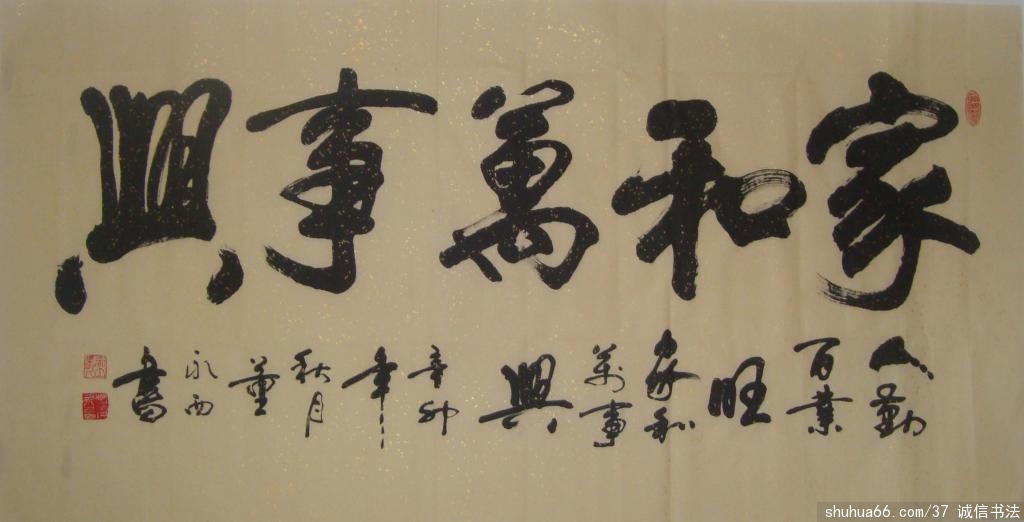 家和萬事興
人勤百業旺家和萬事興辛卯年秋月董永西書
shuhua66.com/37 诚信书法